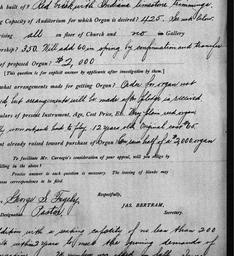 ch built of? Red brick with Indiana limestone trimmings.
g Capacity of Auditorium for which Organ is desired? 425. See note below.
rising all in floor of Church and no in Gallery
ership? 350. Will add 60 in spring by confirmation and transfer
of proposed Organ? $2,000
[This question is for explicit answer by applicants after investigation by them.]
what arrangements made for getting Organ? Order for organ not
, but arrangements will be made after pledge is received
culars of present Instrument, Age, Cost Price, &c. Very poor reed organ
12 years old. Original cost $65.
ant already raised toward purchase of Organ One half of a $2,000 organ
To facilitate Mr. Carnegie's consideration of your appeal, will you oblige by
lling in the above?
Precise answer to each question is necessary. The issuing of blanks may
correspondence as to filed.
Respectfully,
George S.
JAS. BERTRAM,
Designation Pastor.
Secretary.
with a seating capacity of no less than 200
within 2 years to meet the growing demands of